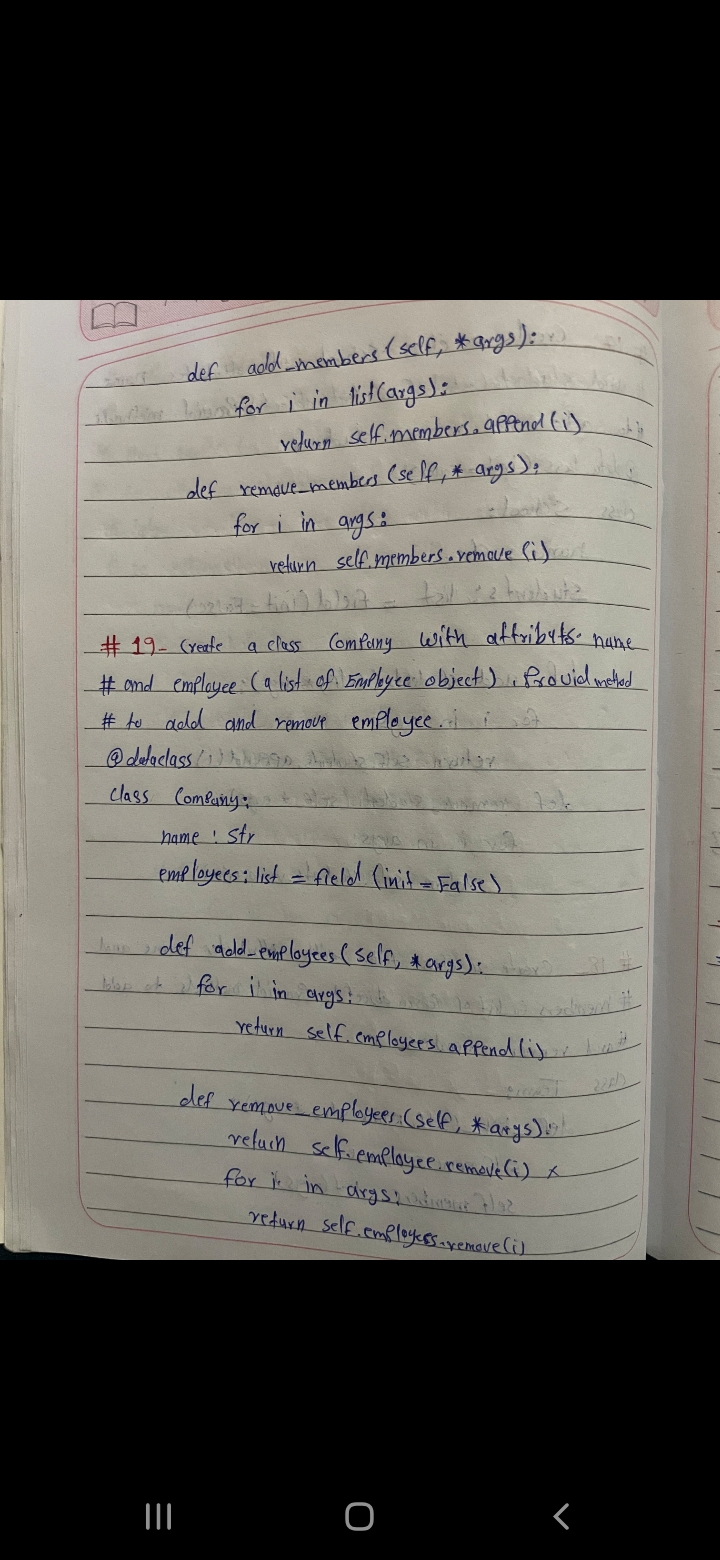 def add_members (self, *args):
for i in list(args):
return self.members.append(i)
def remove_members (self, *args):
for i in args:
return self.members.remove (i)
# 19- Create a class Company with attributs- name
# and employee (a list of Employee object). Provid method
# to add and remove employee.
@dataclass
class Company:
name : str
employees: list = field (init = False)
def add_employees (self, *args):
for i in args:
return self.employees.append(i)
def remove_employees (self, *args):
return self.employee.remove(i) x
for i in args:
return self.employees.remove(i)